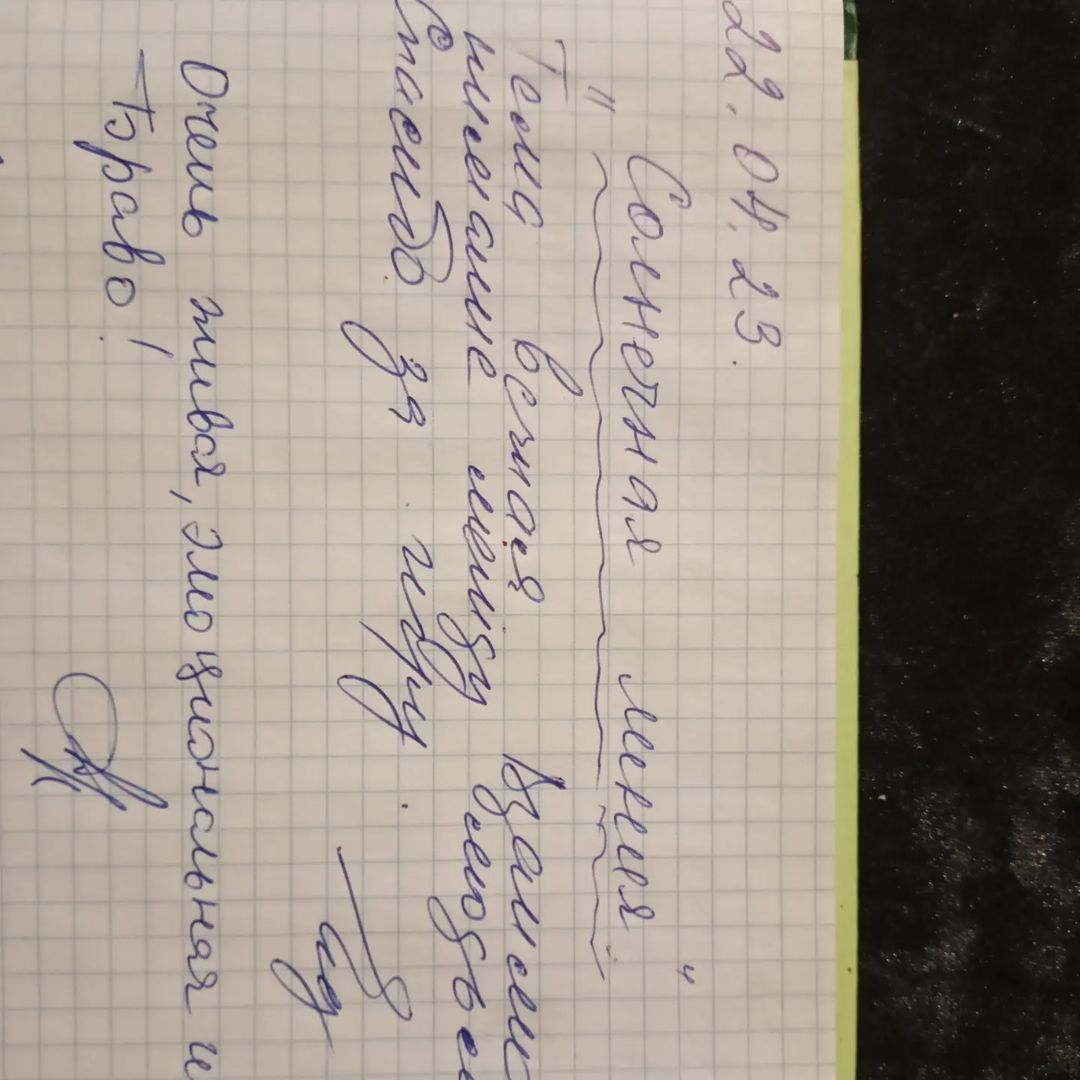 22.04.23.
"Солнечная линия"
Тема вечная Взаимо
нимание между людьми
Спасибо за игру.
Очень живая, эмоциональная и
Браво!